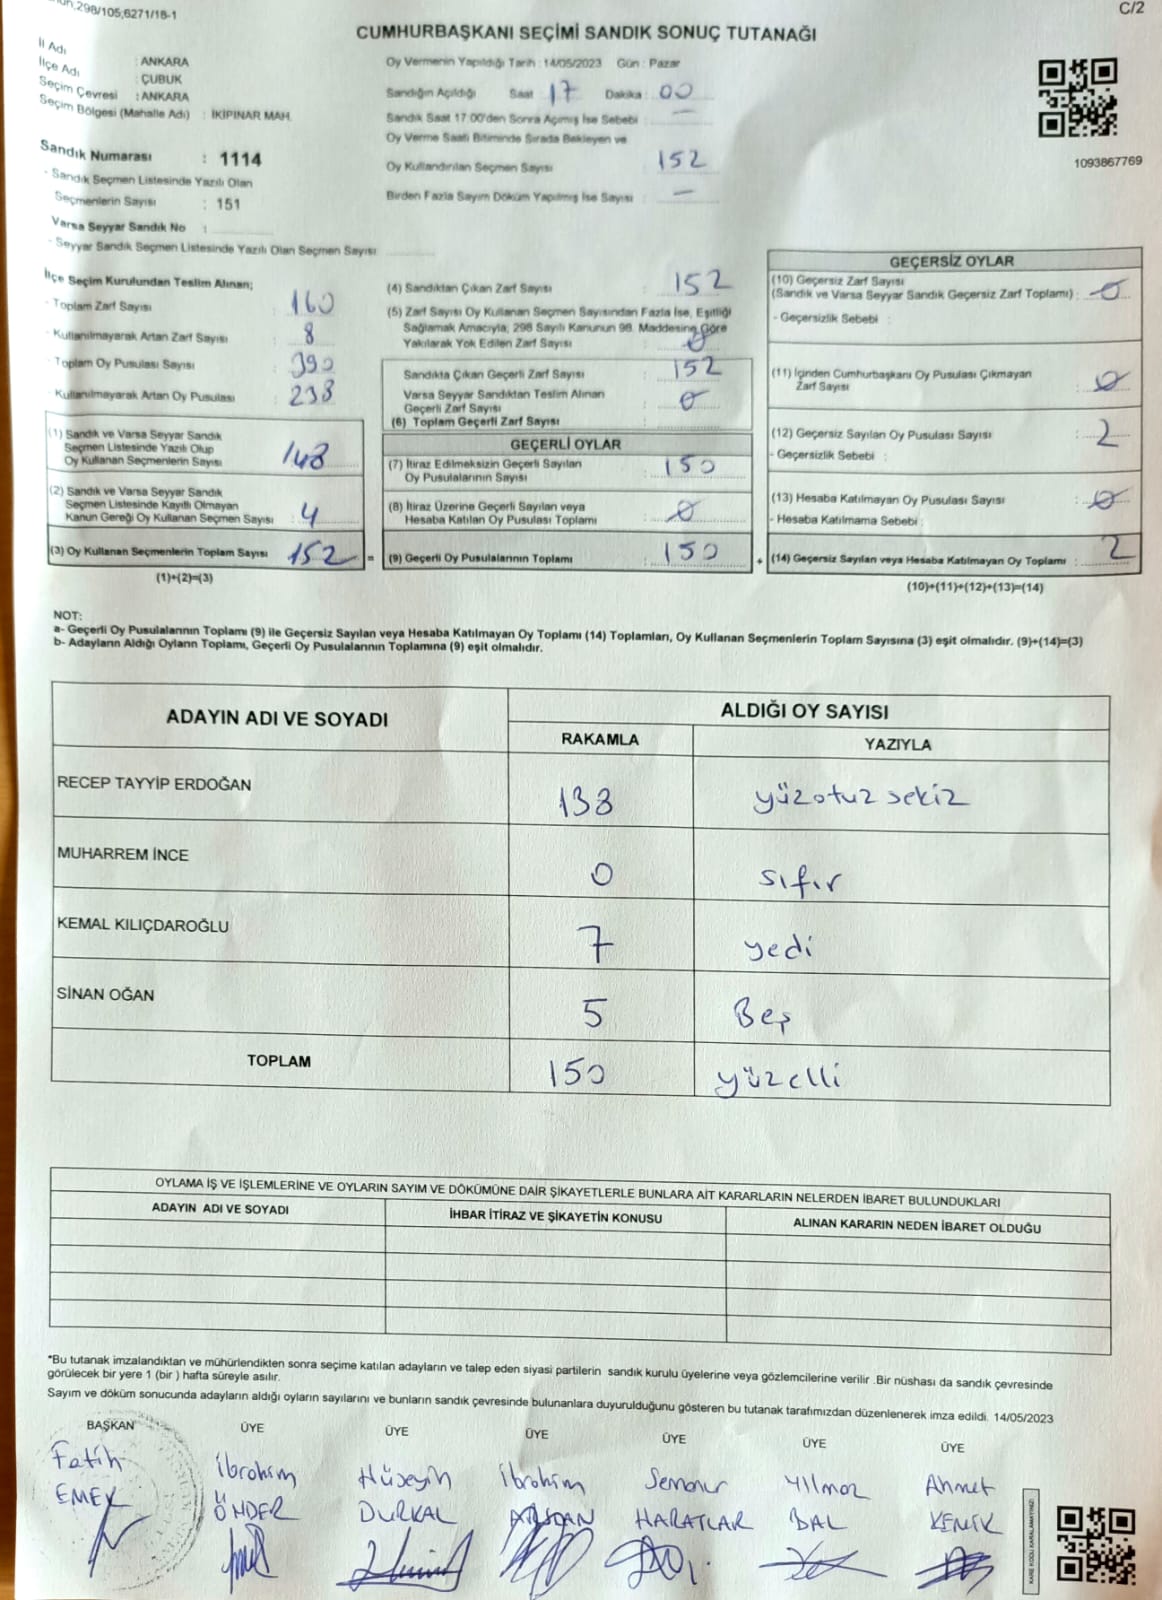 298/105;6271/18-1
C/2
CUMHURBAŞKANI SEÇİMİ SANDIK SONUÇ TUTANAĞI
İl Adı : ANKARA
İlçe Adı : ÇUBUK
Seçim Çevresi : ANKARA
Seçim Bölgesi (Mahalle Adı) : İKİPINAR MAH.
Sandık Numarası : 1114
- Sandık Seçmen Listesinde Yazılı Olan
Seçmenlerin Sayısı : 151
Varsa Seyyar Sandık No :
- Seyyar Sandık Seçmen Listesinde Yazılı Olan Seçmen Sayısı
Oy Vermenin Yapıldığı Tarih : 14/05/2023 Gün : Pazar
Sandığın Açıldığı Saat : 17 Dakika : 00
Sandık Saat 17.00'den Sonra Açımış İse Sebebi : —
Oy Verme Saati Bitiminde Sırada Bekleyen ve
Oy Kullandırılan Seçmen Sayısı : 152
Birden Fazla Sayım Döküm Yapılmış İse Sayısı : —
1093867769
İlçe Seçim Kurulundan Teslim Alınan;
- Toplam Zarf Sayısı : 160
- Kullanılmayarak Artan Zarf Sayısı : 8
- Toplam Oy Pusulası Sayısı : 390
- Kullanılmayarak Artan Oy Pusulası : 238
(1) Sandık ve Varsa Seyyar Sandık
Seçmen Listesinde Yazılı Olup
Oy Kullanan Seçmenlerin Sayısı : 148
(2) Sandık ve Varsa Seyyar Sandık
Seçmen Listesinde Kayıtlı Olmayan
Kanun Gereği Oy Kullanan Seçmen Sayısı : 4
(3) Oy Kullanan Seçmenlerin Toplam Sayısı : 152 =
(1)+(2)=(3)
(4) Sandıktan Çıkan Zarf Sayısı : 152
(5) Zarf Sayısı Oy Kullanan Seçmen Sayısından Fazla İse, Eşitliği
Sağlamak Amacıyla, 298 Sayılı Kanunun 98. Maddesine Göre
Yakılarak Yok Edilen Zarf Sayısı : 0
Sandıkta Çıkan Geçerli Zarf Sayısı : 152
Varsa Seyyar Sandıktan Teslim Alınan
Geçerli Zarf Sayısı : 0
(6) Toplam Geçerli Zarf Sayısı :
GEÇERLİ OYLAR
(7) İtiraz Edilmeksizin Geçerli Sayılan
Oy Pusulalarının Sayısı : 150
(8) İtiraz Üzerine Geçerli Sayılan veya
Hesaba Katılan Oy Pusulası Toplamı : 0
(9) Geçerli Oy Pusulalarının Toplamı : 150 +
GEÇERSİZ OYLAR
(10) Geçersiz Zarf Sayısı
(Sandık ve Varsa Seyyar Sandık Geçersiz Zarf Toplamı) : 0
- Geçersizlik Sebebi :
(11) İçinden Cumhurbaşkanı Oy Pusulası Çıkmayan
Zarf Sayısı : 0
(12) Geçersiz Sayılan Oy Pusulası Sayısı : 2
- Geçersizlik Sebebi :
(13) Hesaba Katılmayan Oy Pusulası Sayısı : 0
- Hesaba Katılmama Sebebi :
(14) Geçersiz Sayılan veya Hesaba Katılmayan Oy Toplamı : 2
(10)+(11)+(12)+(13)=(14)
NOT:
a- Geçerli Oy Pusulalarının Toplamı (9) ile Geçersiz Sayılan veya Hesaba Katılmayan Oy Toplamı (14) Toplamları, Oy Kullanan Seçmenlerin Toplam Sayısına (3) eşit olmalıdır. (9)+(14)=(3)
b- Adayların Aldığı Oyların Toplamı, Geçerli Oy Pusulalarının Toplamına (9) eşit olmalıdır.
ADAYIN ADI VE SOYADI
ALDIĞI OY SAYISI
RAKAMLA YAZIYLA
RECEP TAYYİP ERDOĞAN 138 yüzotuz sekiz
MUHARREM İNCE 0 sıfır
KEMAL KILIÇDAROĞLU 7 yedi
SİNAN OĞAN 5 Beş
TOPLAM 150 yüzelli
OYLAMA İŞ VE İŞLEMLERİNE VE OYLARIN SAYIM VE DÖKÜMÜNE DAİR ŞİKAYETLERLE BUNLARA AİT KARARLARIN NELERDEN İBARET BULUNDUKLARI
ADAYIN ADI VE SOYADI İHBAR İTİRAZ VE ŞİKAYETİN KONUSU ALINAN KARARIN NEDEN İBARET OLDUĞU
*Bu tutanak imzalandıktan ve mühürlendikten sonra seçime katılan adayların ve talep eden siyasi partilerin sandık kurulu üyelerine veya gözlemcilerine verilir .Bir nüshası da sandık çevresinde
görülecek bir yere 1 (bir ) hafta süreyle asılır.
Sayım ve döküm sonucunda adayların aldığı oyların sayılarını ve bunların sandık çevresinde bulunanlara duyurulduğunu gösteren bu tutanak tarafımızdan düzenlenerek imza edildi. 14/05/2023
BAŞKAN ÜYE ÜYE ÜYE ÜYE ÜYE ÜYE
Fatih İbrahim Hüseyin İbrahim Semanur Yılmaz Ahmet
EMEK ÖNDER DURKAL ARSLAN HARATLAR BAL KENİK
KARE KODU KARALAMAYINIZ!